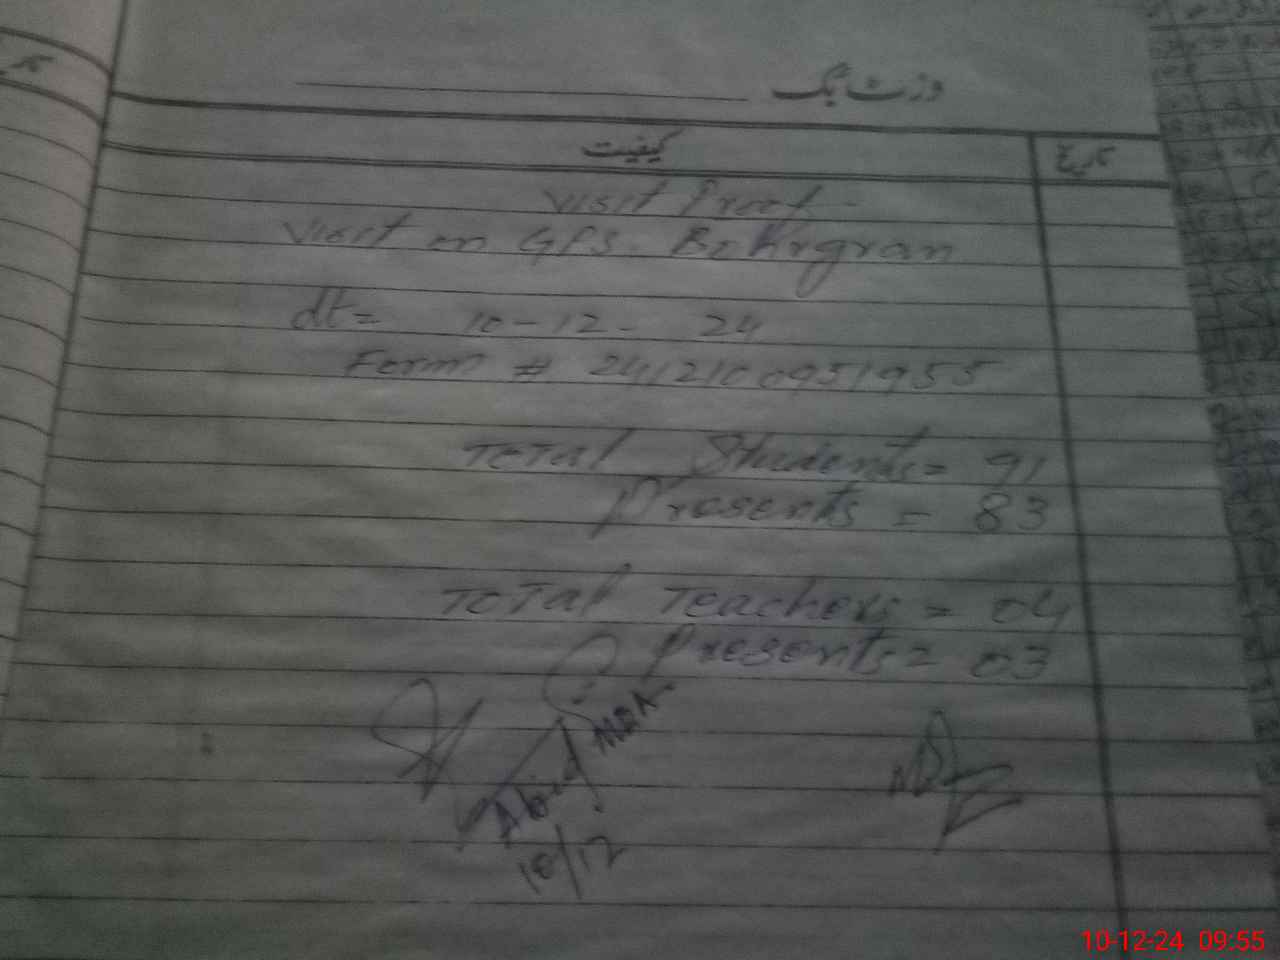 وزٹ بک
کیفیت
تاریخ
Visit Proof
Visit on GPS. Bohrgran
dt= 10-12-24
Form # 2412100951955
Total Students= 91
Presents = 83
Total Teachers = 04
Presents= 03
Abid
10/12
10-12-24 09:55